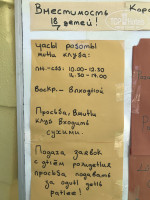 Вместимость
18 детей!
Часы работы
мини клуба:
пн.-сб.: 10.00-12.30
16.30-17.00
Воскр.- Выходной
Просьба, в мини
клуб входить
сухими.
Подача заявок
с днём рождения
просьба подавать
за один день
ранее!